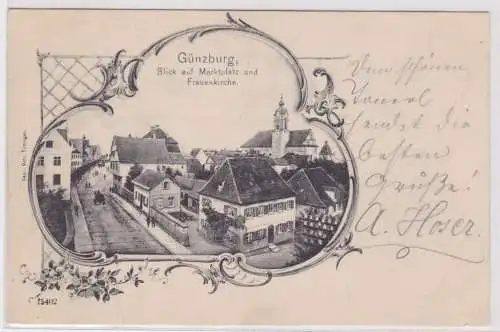 Günzburg,
Blick auf Marktplatz und
Frauenkirche.
Vom schönen
sendet die
besten
Grüße!
A. Hoser.